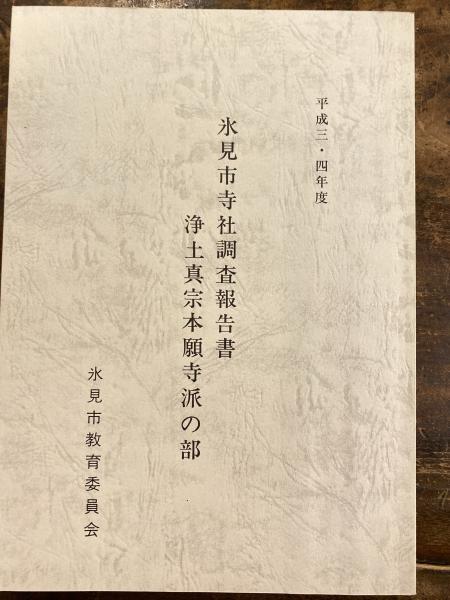 平成三・四年度
氷見市寺社調査報告書
浄土真宗本願寺派の部
氷見市教育委員会